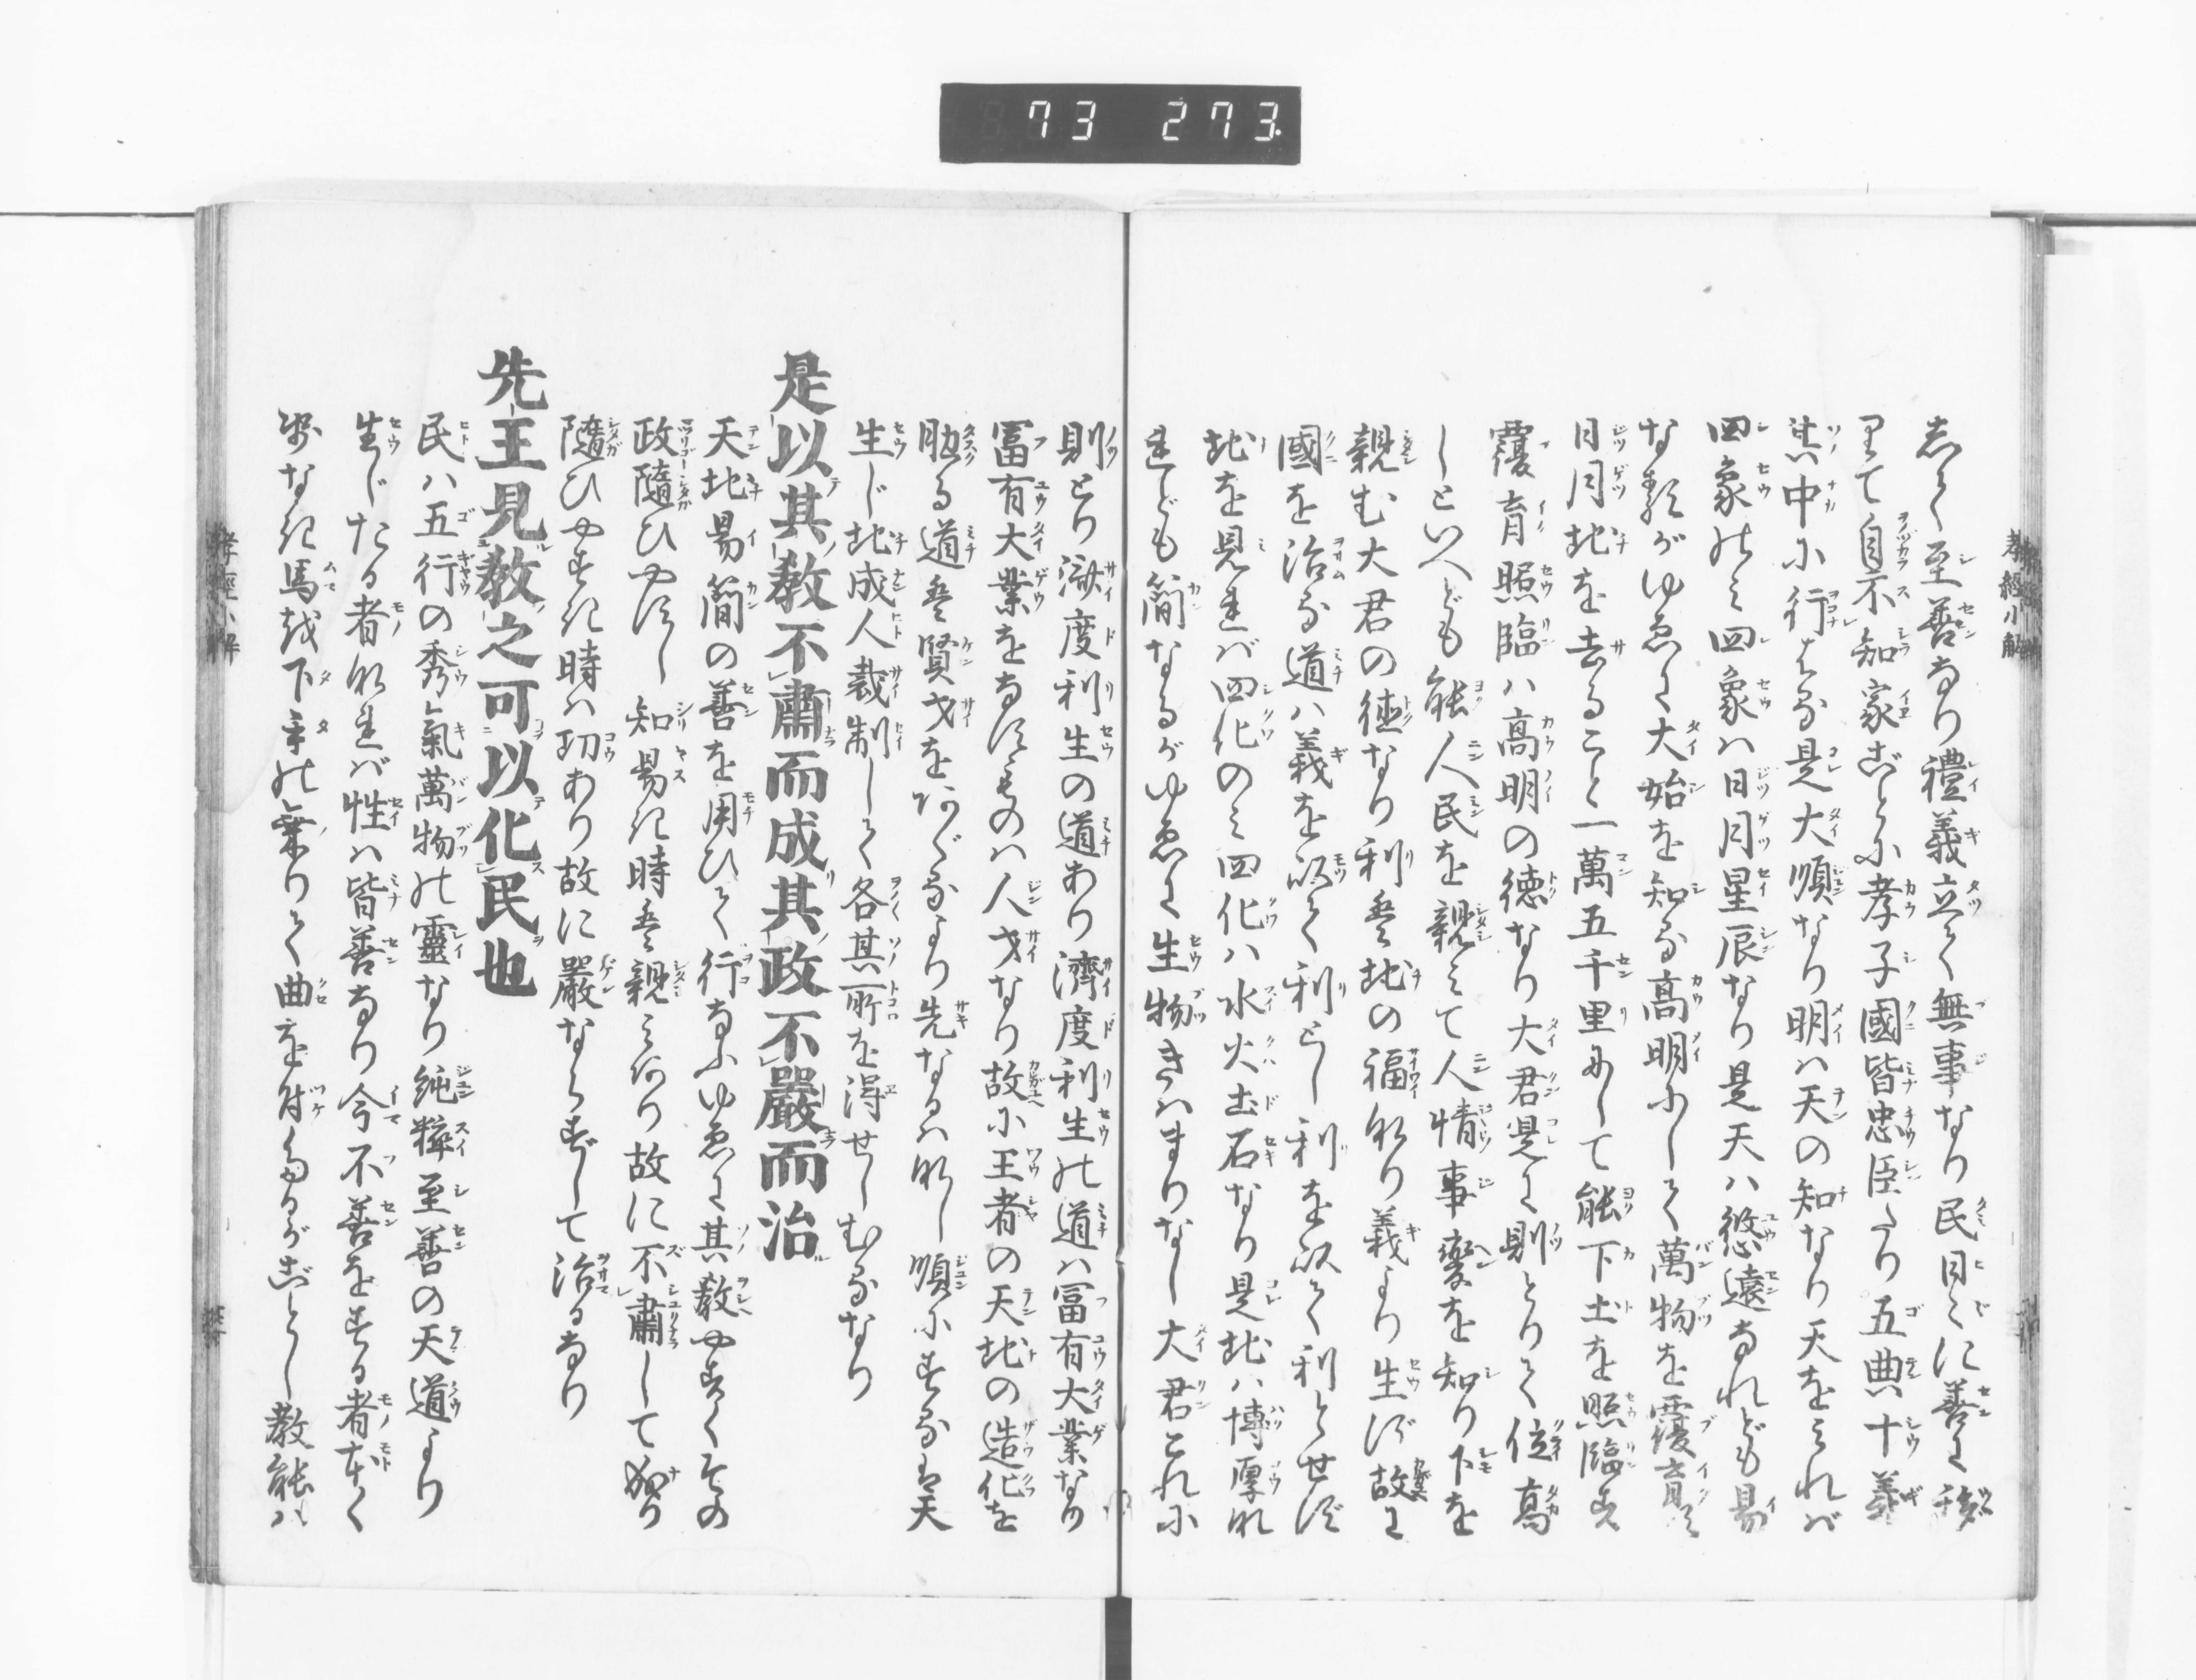 73 273.
孝經小解
志く至善なり禮義立く無事なり民日〻に善に移
りて自不知家ごとに孝子國皆忠臣たり五典十義
其中に行はる是大順なり明は天の知なり天をみれば
四象のみ四象は日月星辰なり是天は悠遠なれども易
な類がゆゑに大始を知る高明にして萬物を覆育
日月地を去ること一萬五千里にして能下土を照臨す
覆育照臨は高明の徳なり大君是に則とりて位高
しといへども能人民を親みて人情事變を知り下を
親む大君の徳なり利は地の福なり義より生ず故に
國を治る道は義を以て利とし利を以て利とせず
地を見れば四化のみ四化は水火土石なり是地は博厚な
れども簡なるがゆゑに生物きはまりなし大君これに
則とり濟度利生の道あり濟度利生の道は冨有大業なり
冨有大業をなすものは人才なり故に王者の天地の造化を
助る道は賢才をあぐるより先なるはなし順にする は天
生じ地成人裁制して各其所を得せしむるなり
是以其教不肅而成其政不嚴而治
天地易簡の善を用ひて行なふゆゑに其教やすくその
政隨ひやすし知易き時は親みあり故に不肅して成り
隨ひやすき時は功あり故に嚴ならずして治るなり
先王見教之可以化民也
民は五行の秀氣萬物の靈なり純粹至善の天道より
生じたる者なれば性は皆善なり今不善をする者本く
なき馬を下手の乗りて曲を付たるがごとし教能は
孝經小解